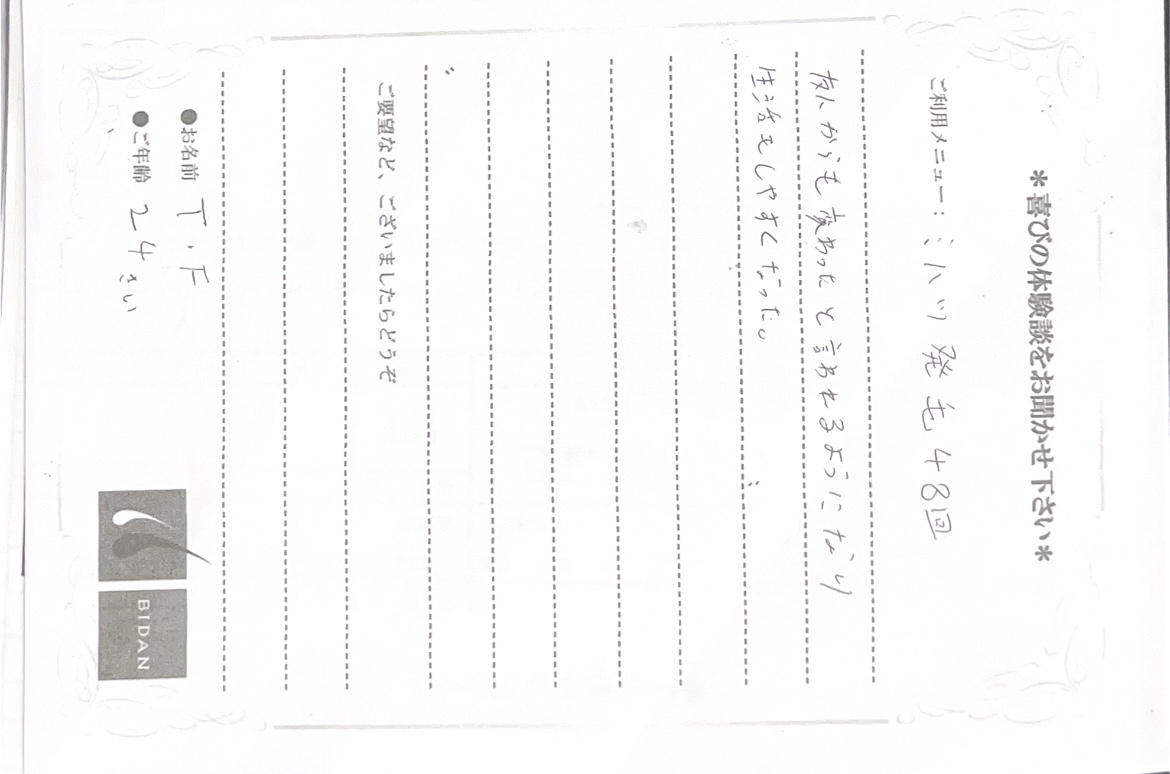 ＊喜びの体験談をお聞かせ下さい＊
ご利用メニュー：ミハリ発毛48回
友人からも変わったと言われるようになり
生活をしやすくなった。
ご要望など、ございましたらどうぞ
●お名前 T.F
●ご年齢 24さい
BIDAN